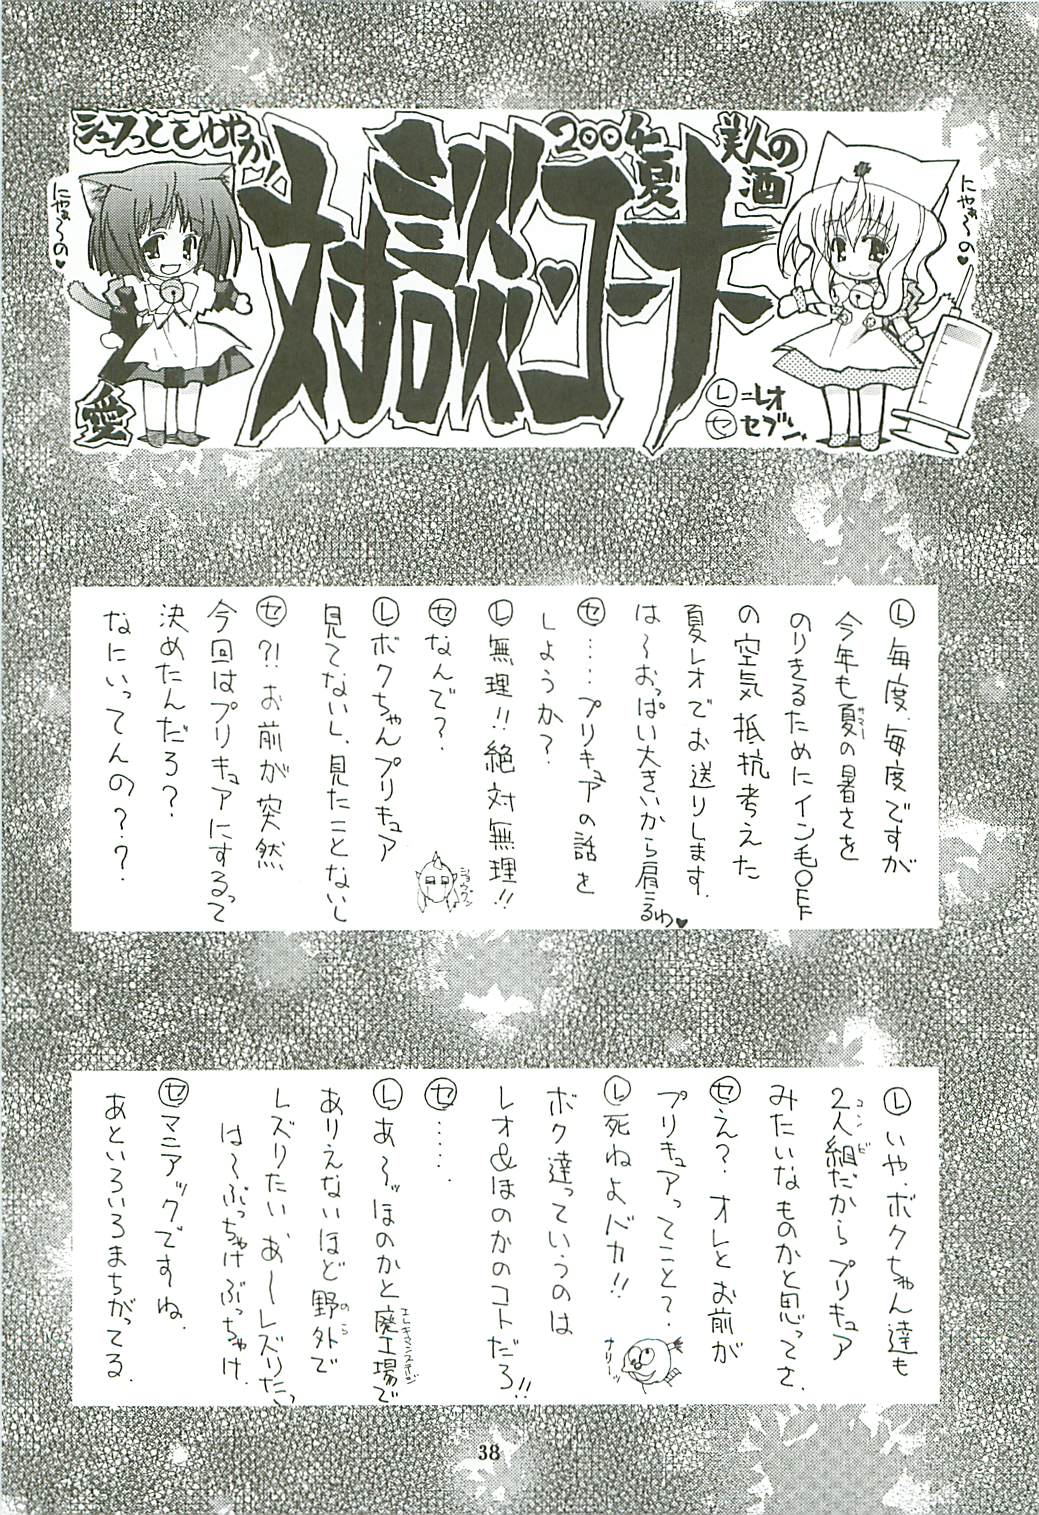 シュワっとこゆやか!
対談コーナー
2004夏
美人の酒
にゃあ〜の♥
にゃあ〜の♥
愛
Ⓛ=レオ
㋝=セブン
Ⓛ毎度、毎度ですが
今年も夏の暑さを
サマー
のりきるためにイン毛OFF
の空気抵抗考えた
夏レオでお送りします.
は〜おっぱい大きいから肩こるわ♥
㋝……プリキュアの話を
しようか?
Ⓛ無理!!絶対無理!!
㋝なんで?
ショウグン
Ⓛボクちゃんプリキュア
見てないし、見たことないし
㋝?!お前が突然
今回はプリキュアにするって
決めたんだろ?
なにいってんの??
Ⓛいや、ボクちゃん達も
2人組だからプリキュア
コンビ
みたいなものかと思ってさ.
㋝え?オレとお前が
プリキュアってこと?
Ⓛ死ねよバカ!!
ナリーッ
ボク達っていうのは
レオ&ほのかのコトだろ!!
㋝……
Ⓛあ〜ッほのかと廃工場で
エレキマンステージ
ありえないほど野外で
のら
レズりたいあ〜レズりたい
は〜ぶっちゃけぶっちゃけ.
㋝マニアックですね.
あといろいろまちがってる.
38